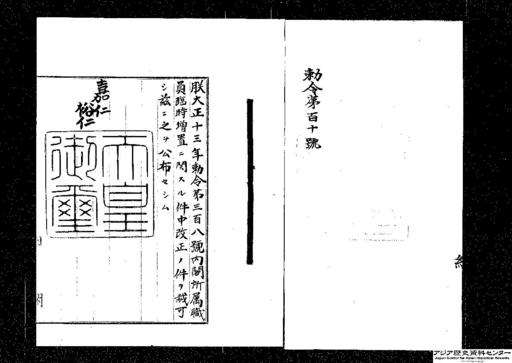 勅令第百十號
朕大正十三年勅令第三百八號内閣所属職
員臨時増置ニ関スル件中改正ノ件ヲ裁可
シ茲ニ之ヲ公布セシム
嘉仁
裕仁
天皇
御璽
アジア歴史資料センター
Japan Center for Asian Historical Records